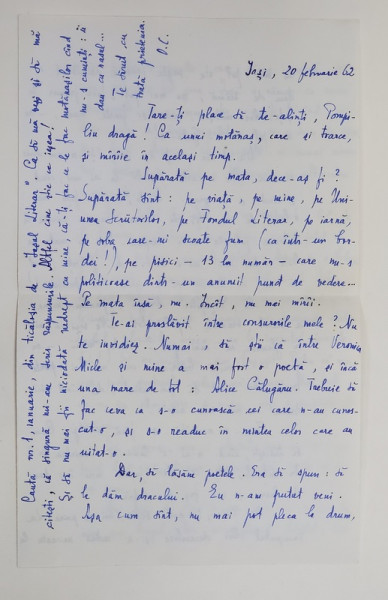 Iași, 20 februarie 62
Tare-ți place să te-alinți, Pompi-
liu dragă! Ca unui motănaș, care și toarce,
și mîrîie în același timp.
Supărată pe mata, de ce-aș fi?
Supărată sînt: pe viață, pe mine, pe Uni-
unea Scriitorilor, pe Fondul Literar, pe iarnă,
pe soba care-mi scoate fum (ca într-un bor-
dei!), pe pisici – 13 la număr – care nu-s
politicoase dintr-un anumit punct de vedere...
Pe mata însă, nu. Încît, nu mai mîrîi.
Te-ai proslăvit între consurorile mele? Nu
te invidiez. Numai, să știi că între Veronica
Micle și mine a mai fost o poetă, și încă
una mare de tot: Alice Călugăru. Trebuie să
fac ceva ca s-o cunoască cei care n-au cunos-
cut-o, și s-o readuc în mintea celor care au
uitat-o.
Dar, să lăsăm poetele. Era să spun: să
le dăm dracului. Eu n-am putut veni.
Așa cum sînt, nu mai pot pleca la drum,
Caută nr. 1, ianuarie, din ticăloșia de „Iașul Literar”. Ca să mă vezi și să mă
citești, că singură mi-am scris răspunsurile. Altfel cine știe ce ieșea!
Și să nu mai fii niciodată nedrept cu mine, că-ți fac ce le fac motănașilor cînd
nu-s cuminți: îi
dau cu nasul...
Te sărut cu
toată prietenia.
O. C.